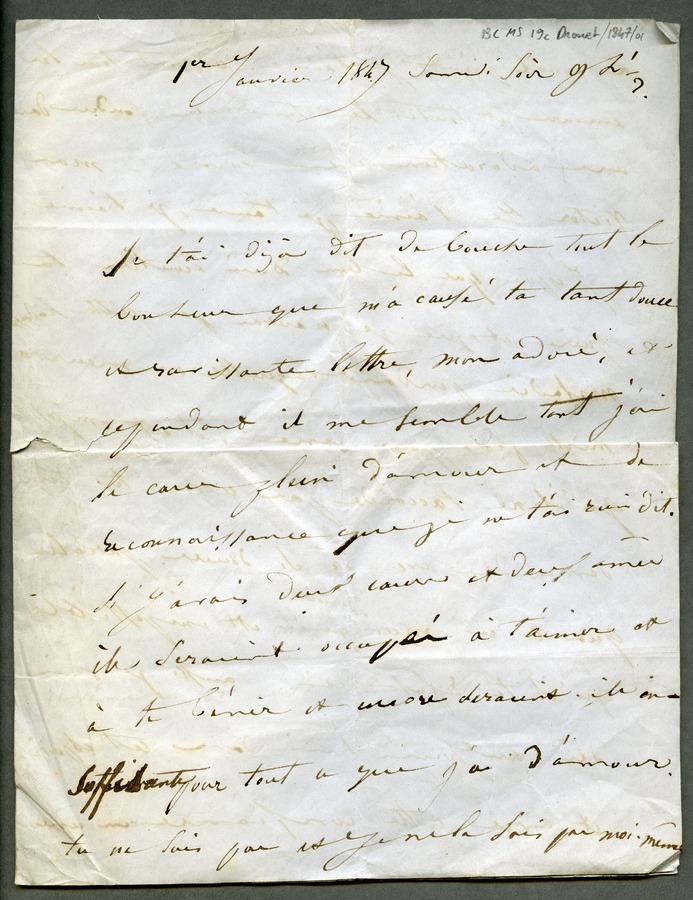 BC MS 19c Drouet/1847/01
1er Janvier 1847 Samedi Soir 9 h ½
Je t'ai déjà dit de bouche tout le
bonheur que m'a causé ta tant douce
et ravissante lettre, mon adoré, et
cependant il me semble tant j'ai
le cœur plein d'amour et de
reconnaissance que je ne t'ai rien dit.
Si j'avais deux cœurs et deux âmes
ils seraient occupés à t'aimer et
à te bénir et encore seraient-ils in-
suffisants pour tout ce que j'ai d'amour.
tu ne sais pas et je ne le sais pas moi-même